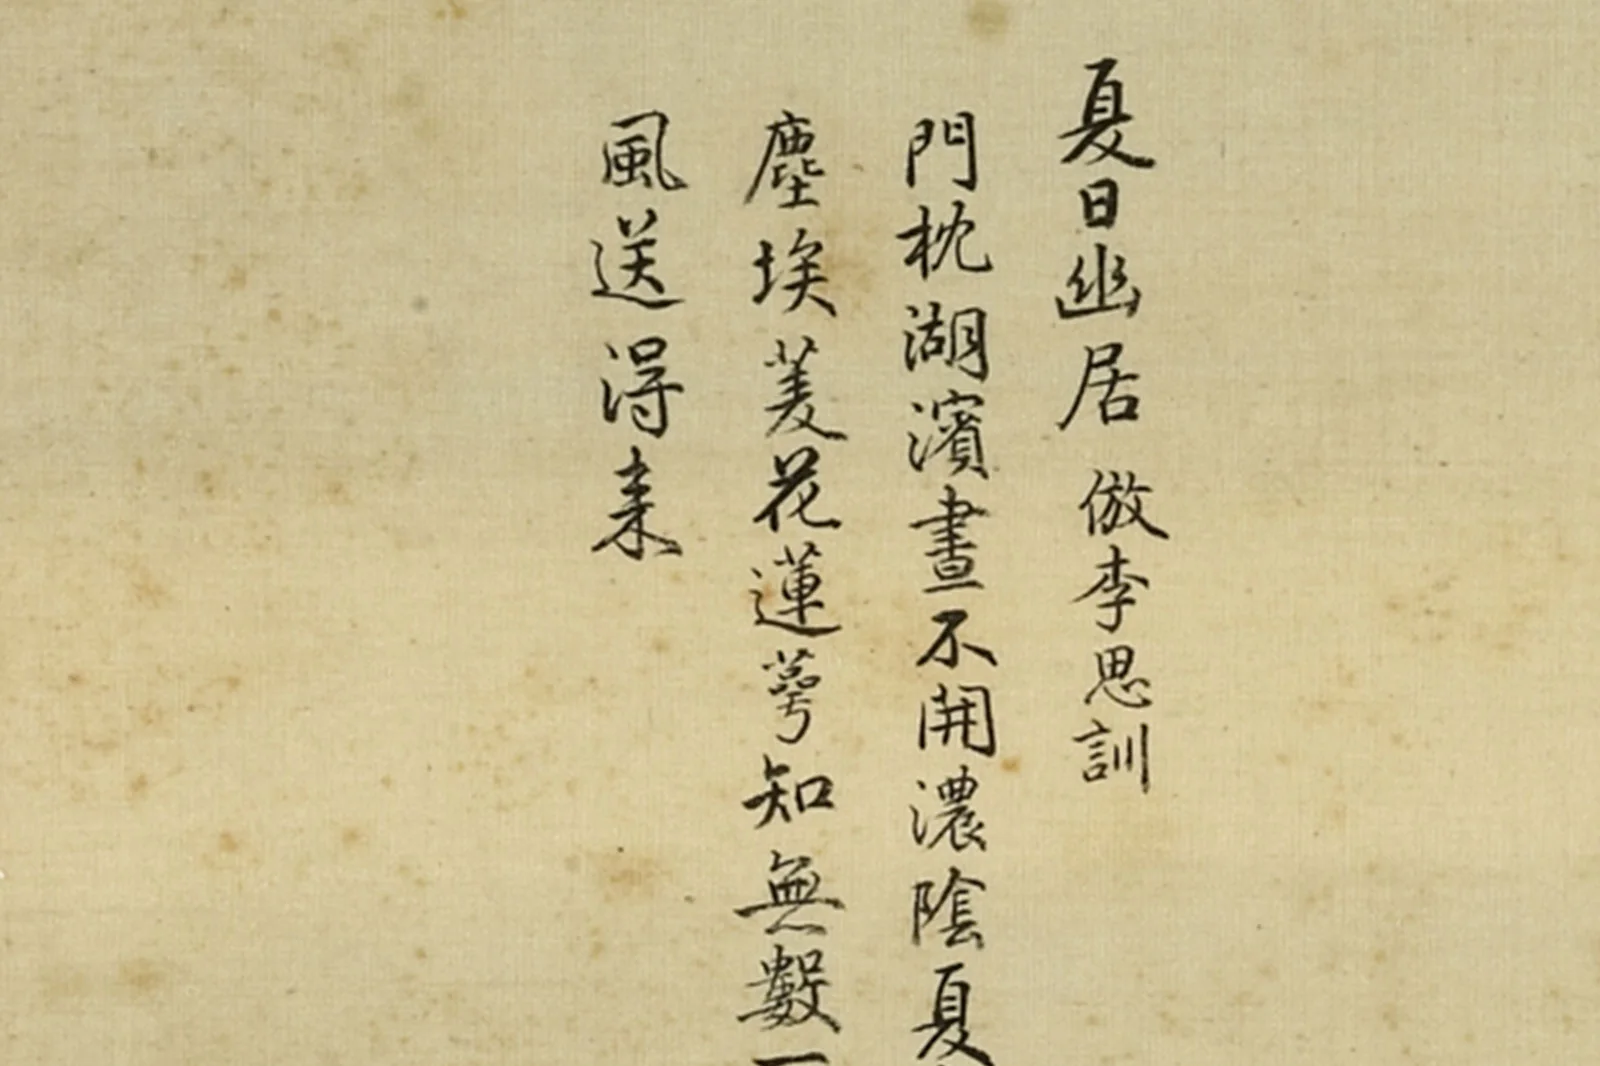 夏日幽居 倣李思訓
門枕湖濱晝不開濃陰夏
塵埃菱花蓮萼知無數一
風送得來